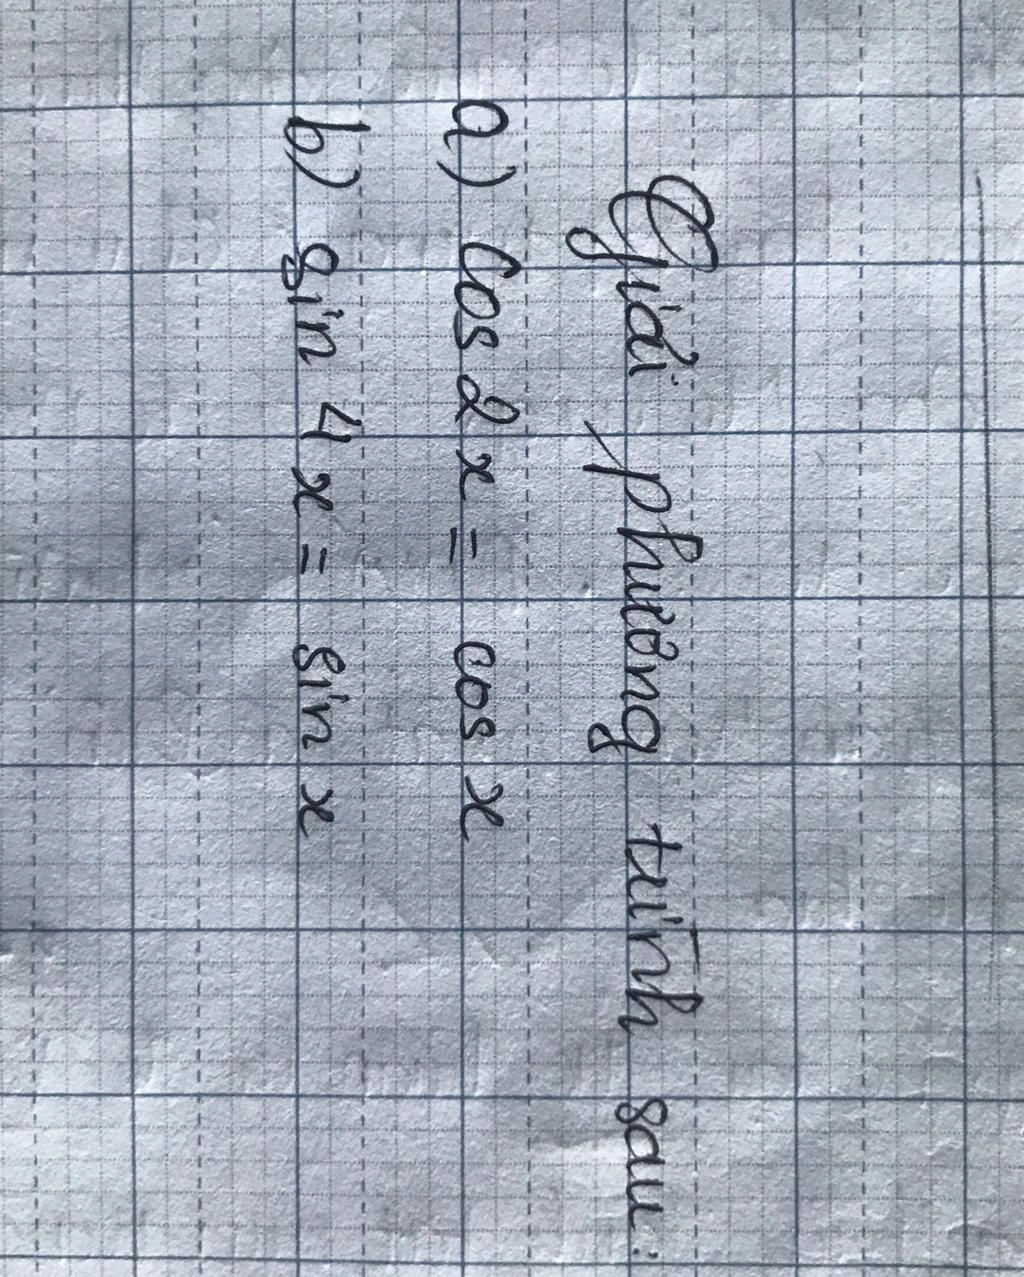 Giải phương trình sau:
a) Cos 2x = cos x
b) sin 4x = sin x